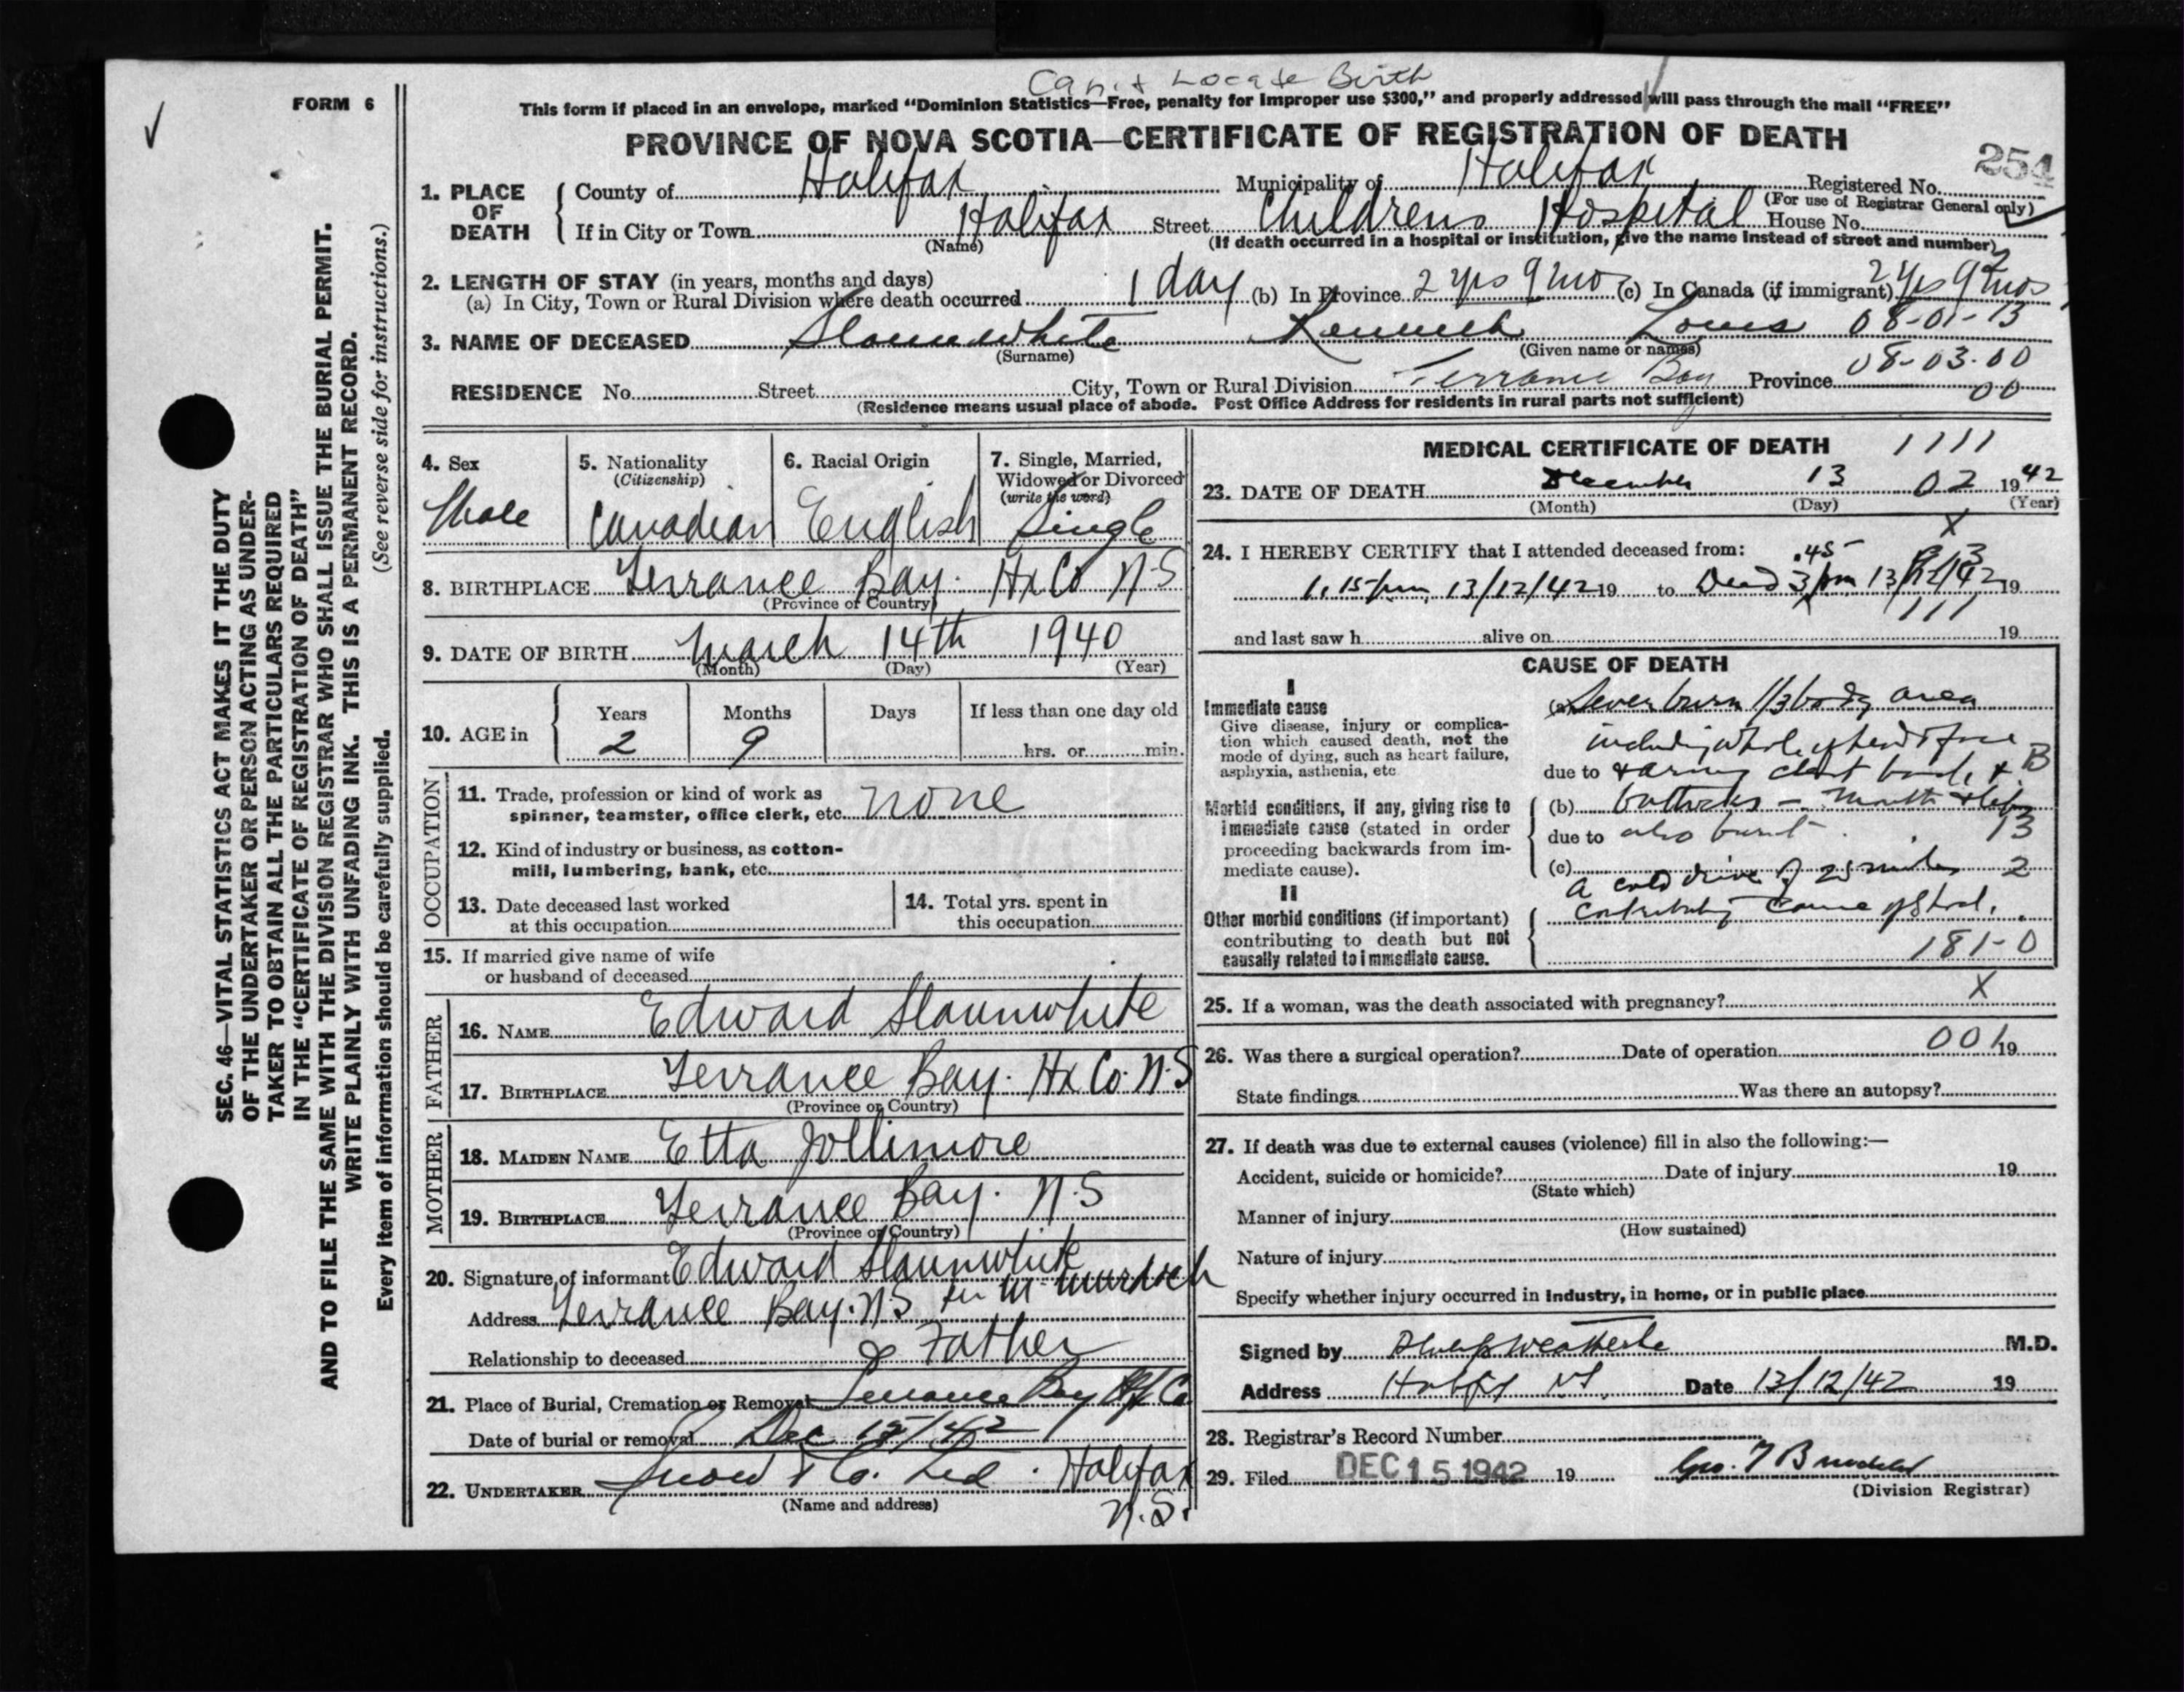 Can't Locate Birth
FORM 6
This form if placed in an envelope, marked “Dominion Statistics—Free, penalty for improper use $300,” and properly addressed will pass through the mail “FREE”
PROVINCE OF NOVA SCOTIA—CERTIFICATE OF REGISTRATION OF DEATH
254
1. PLACE OF DEATH
County of Halifax Municipality of Halifax Registered No.
(For use of Registrar General only)
If in City or Town Halifax Street Childrens Hospital House No.
(Name) (If death occurred in a hospital or institution, give the name instead of street and number)
2. LENGTH OF STAY (in years, months and days)
(a) In City, Town or Rural Division where death occurred 1 day (b) In Province 2 yrs 9 mo (c) In Canada (if immigrant) 2 yrs 9 mos
3. NAME OF DECEASED Slaunwhite Kenneth Louis 08-01-13
(Surname) (Given name or names)
08-03-00
RESIDENCE No. Street City, Town or Rural Division Terrance Bay Province 00
(Residence means usual place of abode. Post Office Address for residents in rural parts not sufficient)
4. Sex Male
5. Nationality (Citizenship) Canadian
6. Racial Origin English
7. Single, Married, Widowed or Divorced (write the word) Single
8. BIRTHPLACE Terrance Bay. Hx Co N.S
(Province or Country)
9. DATE OF BIRTH March 14th 1940
(Month) (Day) (Year)
10. AGE in Years 2 Months 9 Days If less than one day old hrs. or min.
OCCUPATION
11. Trade, profession or kind of work as spinner, teamster, office clerk, etc. none
12. Kind of industry or business, as cotton-mill, lumbering, bank, etc.
13. Date deceased last worked at this occupation
14. Total yrs. spent in this occupation
15. If married give name of wife or husband of deceased
FATHER
16. NAME Edward Slaunwhite
17. BIRTHPLACE Terrance Bay. Hx Co. N.S
(Province or Country)
MOTHER
18. MAIDEN NAME Etta Jollimore
19. BIRTHPLACE Terrance Bay. N.S
(Province or Country)
20. Signature of informant Edward Slaunwhite
per M. Murdoch
Address Terrance Bay. N.S
Relationship to deceased Father
21. Place of Burial, Cremation or Removal Terrance Bay Hfx Co
Date of burial or removal Dec 15/42
22. UNDERTAKER Snow & Co. Ltd. Halifax
(Name and address) N.S.
MEDICAL CERTIFICATE OF DEATH 1111
23. DATE OF DEATH December 13 02 1942
(Month) (Day) (Year)
X
24. I HEREBY CERTIFY that I attended deceased from:
1.15 pm 13/12/42 19 to Dead 3.45 pm 13/12/42 19
111
and last saw h alive on 19
CAUSE OF DEATH
I
Immediate cause
Give disease, injury or complication which caused death, not the mode of dying, such as heart failure, asphyxia, asthenia, etc.
(a) Severe burn 1/3 body area
including whole of head & face
due to & arms chest back & B
Morbid conditions, if any, giving rise to immediate cause (stated in order proceeding backwards from immediate cause).
(b) buttocks - mouth
due to also burnt. 13
(c) A cold drive of 25 miles 2
II
Other morbid conditions (if important) contributing to death but not causally related to immediate cause.
contributing cause of
181-0
25. If a woman, was the death associated with pregnancy? X
26. Was there a surgical operation? Date of operation 001 19
State findings Was there an autopsy?
27. If death was due to external causes (violence) fill in also the following:—
Accident, suicide or homicide? Date of injury 19
(State which)
Manner of injury
(How sustained)
Nature of injury
Specify whether injury occurred in industry, in home, or in public place
Signed by M.D.
Address Halifax N.S. Date 13/12/42 19
28. Registrar's Record Number
29. Filed DEC 15 1942 19 Geo. T
(Division Registrar)
SEC. 46—VITAL STATISTICS ACT MAKES IT THE DUTY
OF THE UNDERTAKER OR PERSON ACTING AS UNDER-
TAKER TO OBTAIN ALL THE PARTICULARS REQUIRED
IN THE “CERTIFICATE OF REGISTRATION OF DEATH”
AND TO FILE THE SAME WITH THE DIVISION REGISTRAR WHO SHALL ISSUE THE BURIAL PERMIT.
WRITE PLAINLY WITH UNFADING INK. THIS IS A PERMANENT RECORD.
Every item of information should be carefully supplied. (See reverse side for instructions.)